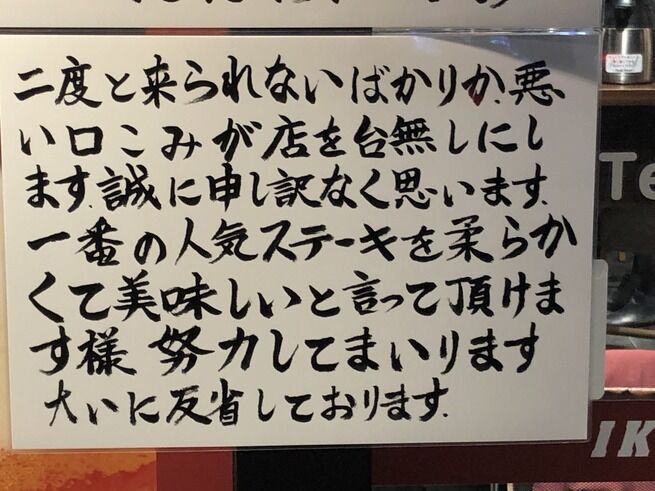 二度と来られないばかりか、悪
い口こみが店を台無しにし
ます。誠に申し訳なく思います。
一番の人気ステーキを柔らか
くて美味しいと言って頂けま
す様 努力してまいります
大いに反省しております。
Te
IK